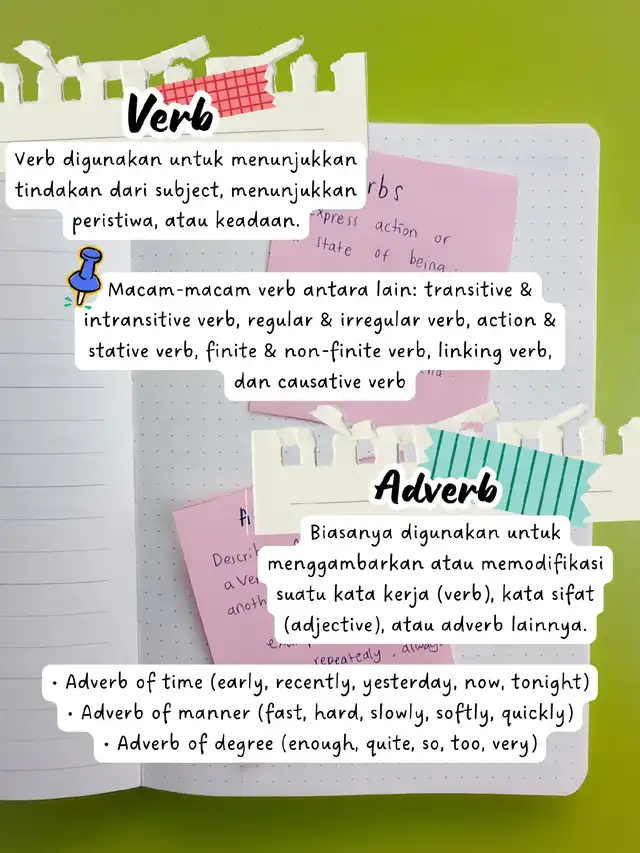 Verb
Verb digunakan untuk menunjukkan
tindakan dari subject, menunjukkan
peristiwa, atau keadaan.
express action or
state of being
Macam-macam verb antara lain: transitive &
intransitive verb, regular & irregular verb, action &
stative verb, finite & non-finite verb, linking verb,
dan causative verb
Adverb
Biasanya digunakan untuk
menggambarkan atau memodifikasi
suatu kata kerja (verb), kata sifat
(adjective), atau adverb lainnya.
repeatedly, always
• Adverb of time (early, recently, yesterday, now, tonight)
• Adverb of manner (fast, hard, slowly, softly, quickly)
• Adverb of degree (enough, quite, so, too, very)